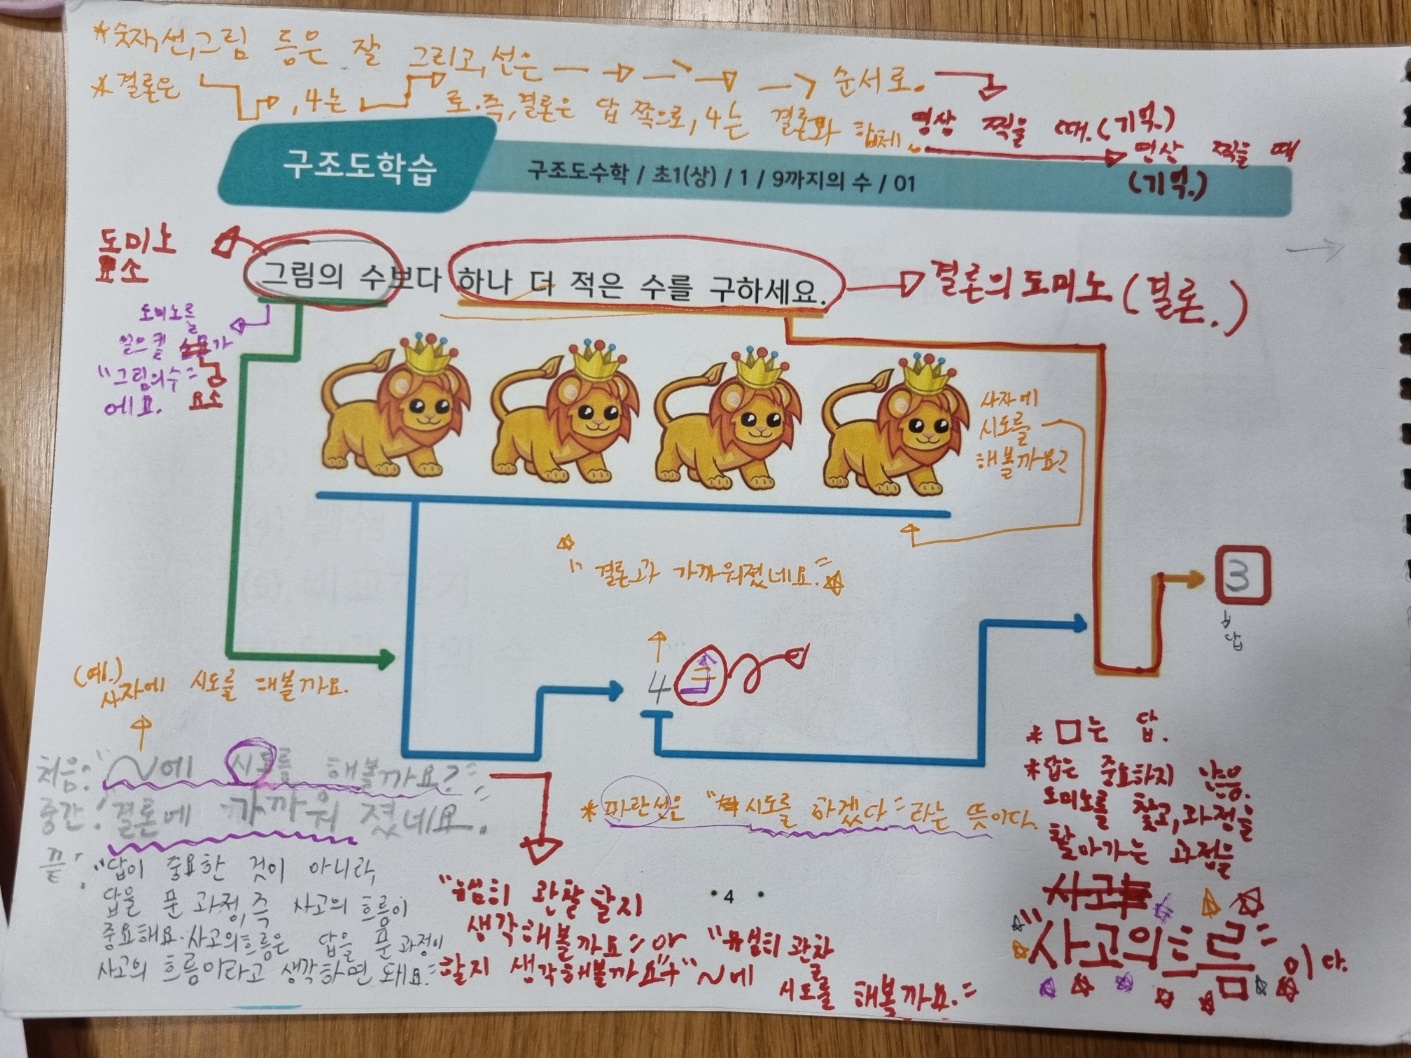 *숫자,선,그림 등은 잘 그리고,선은 순서로.
*결론은 ,4는 로.즉,결론은 답 쪽으로,4는 결론와 합체.
영상 찍을 때.(기억.)
영상 찍을 때
(기억.)
구조도학습
구조도수학 / 초1(상) / 1 / 9까지의 수 / 01
도미노
요소
그림의 수보다 하나 더 적은 수를 구하세요.
결론의 도미노(결론.)
도미노를
일으킬
"그림의수"
에요. 요소
사자에
시도를
해볼까요?
"결론과 가까워졌네요."
3
답
4
(예.)
사자에 시도를 해볼까요.
처음:"~에 시도를 해볼까요?"
중간:"결론에 가까워 졌네요."
끝:"답이 중요한 것이 아니라,
답을 푼 과정,즉 사고의 흐름이
중요해요.사고의흐름은 답을 푼 과정이
사고의 흐름이라고 생각하면 돼요."
*파란선은 "시도를 하겠다"라는 뜻이다.
"유심히 관찰할지
생각해볼까요"or "유심히 관차
할지 생각해볼까요"+"~에
시도를 해볼까요."
• 4 •
*□는 답.
*답은 중요하지 않음.
도미노를 찾고,과정을
찾아가는 과정을
"사고의흐름"이다.